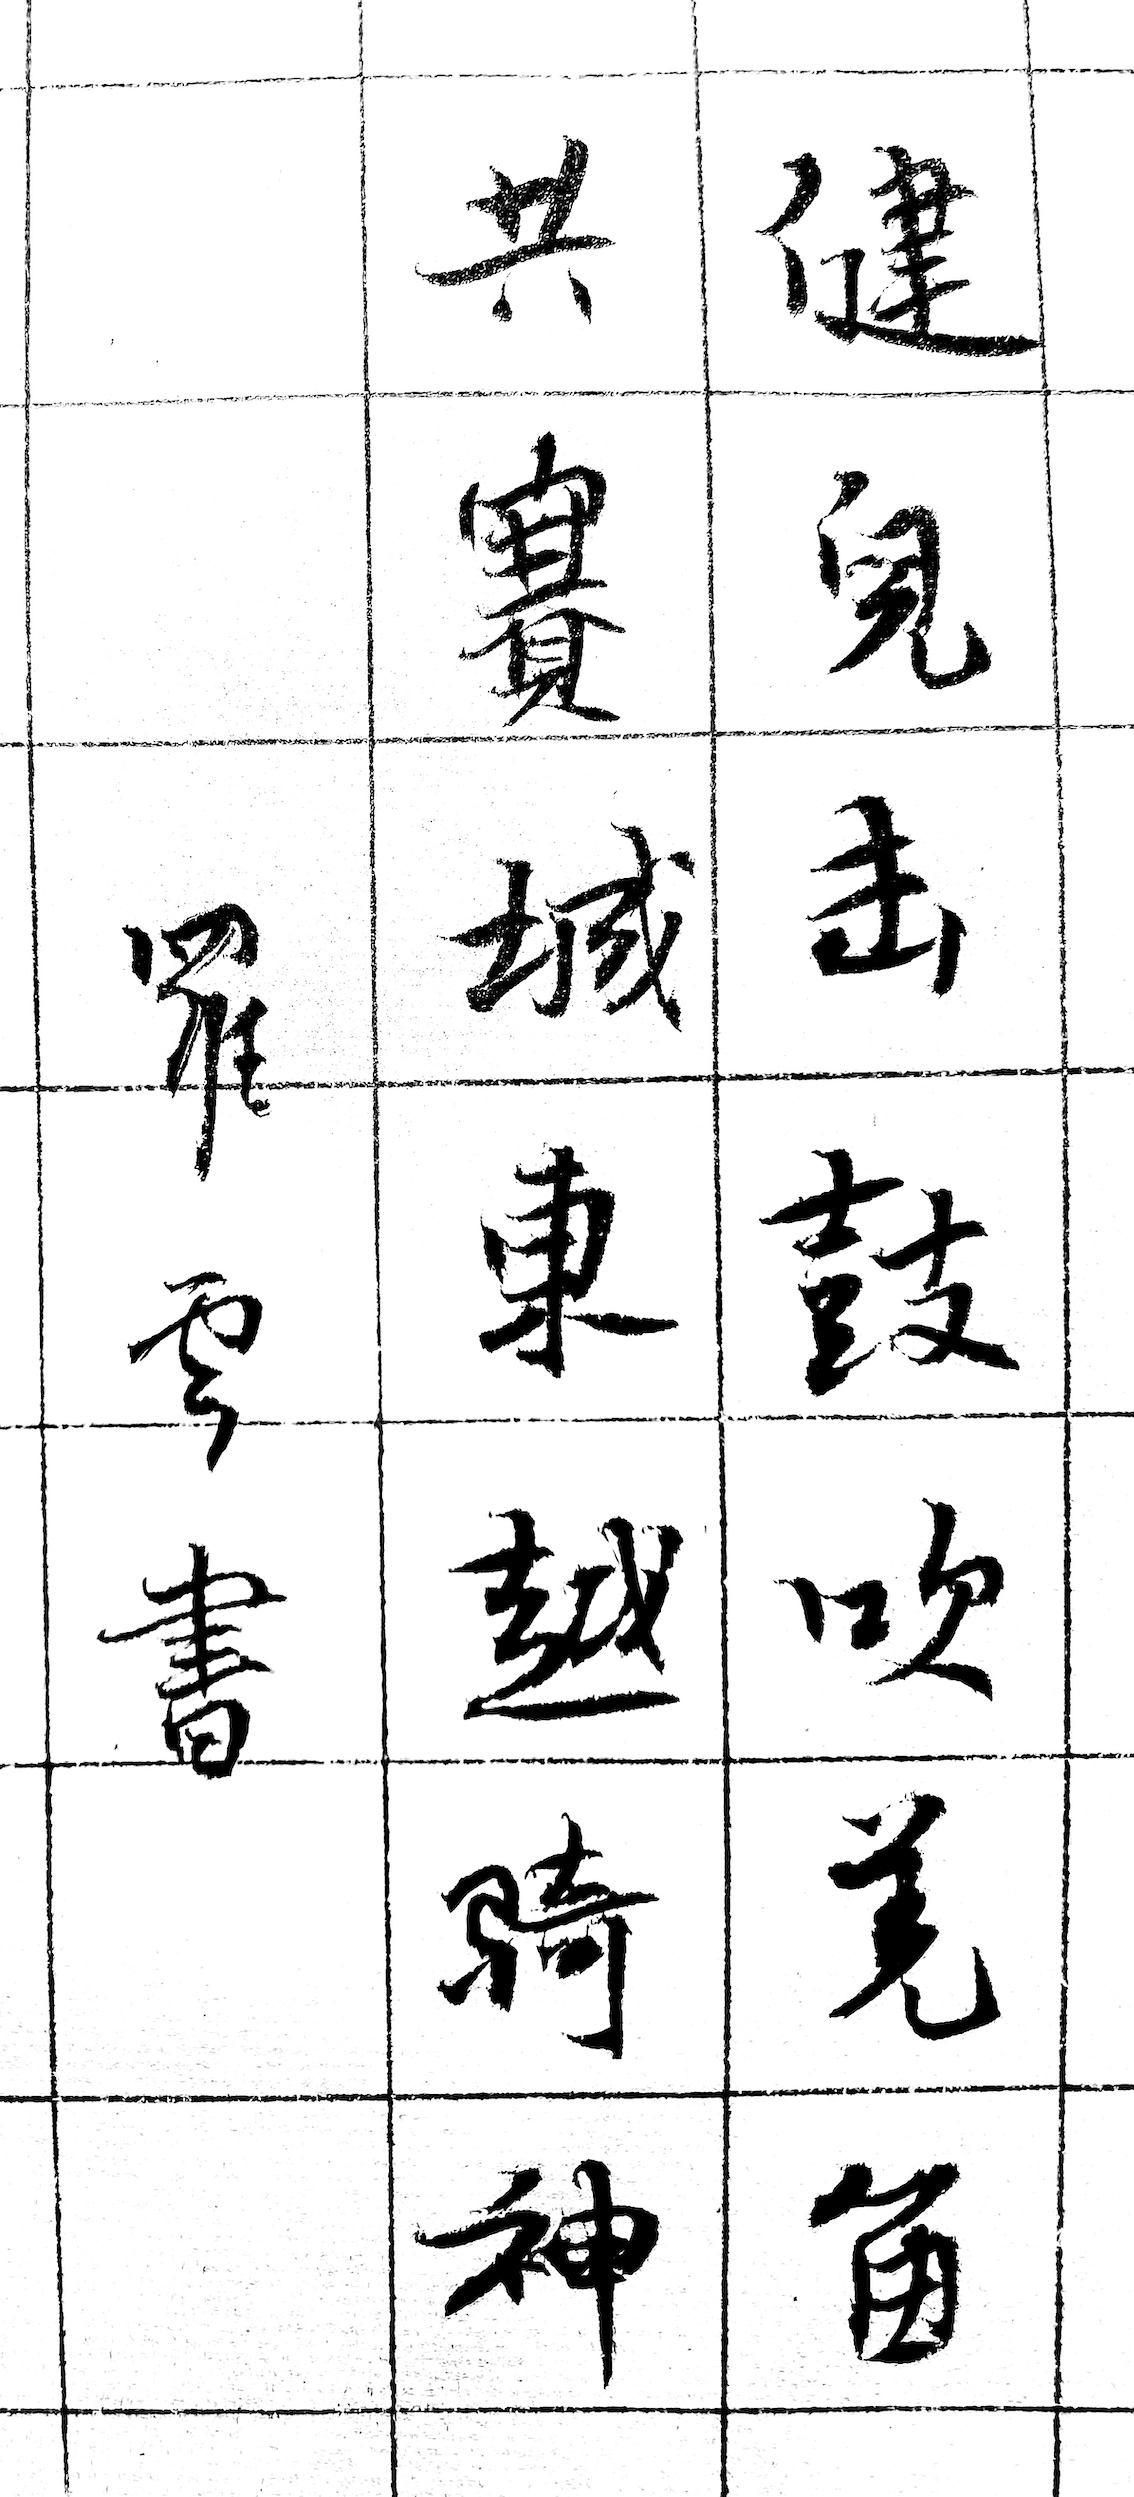 健兒击鼓吹羌笛
共賽城東越騎神
羅雲書